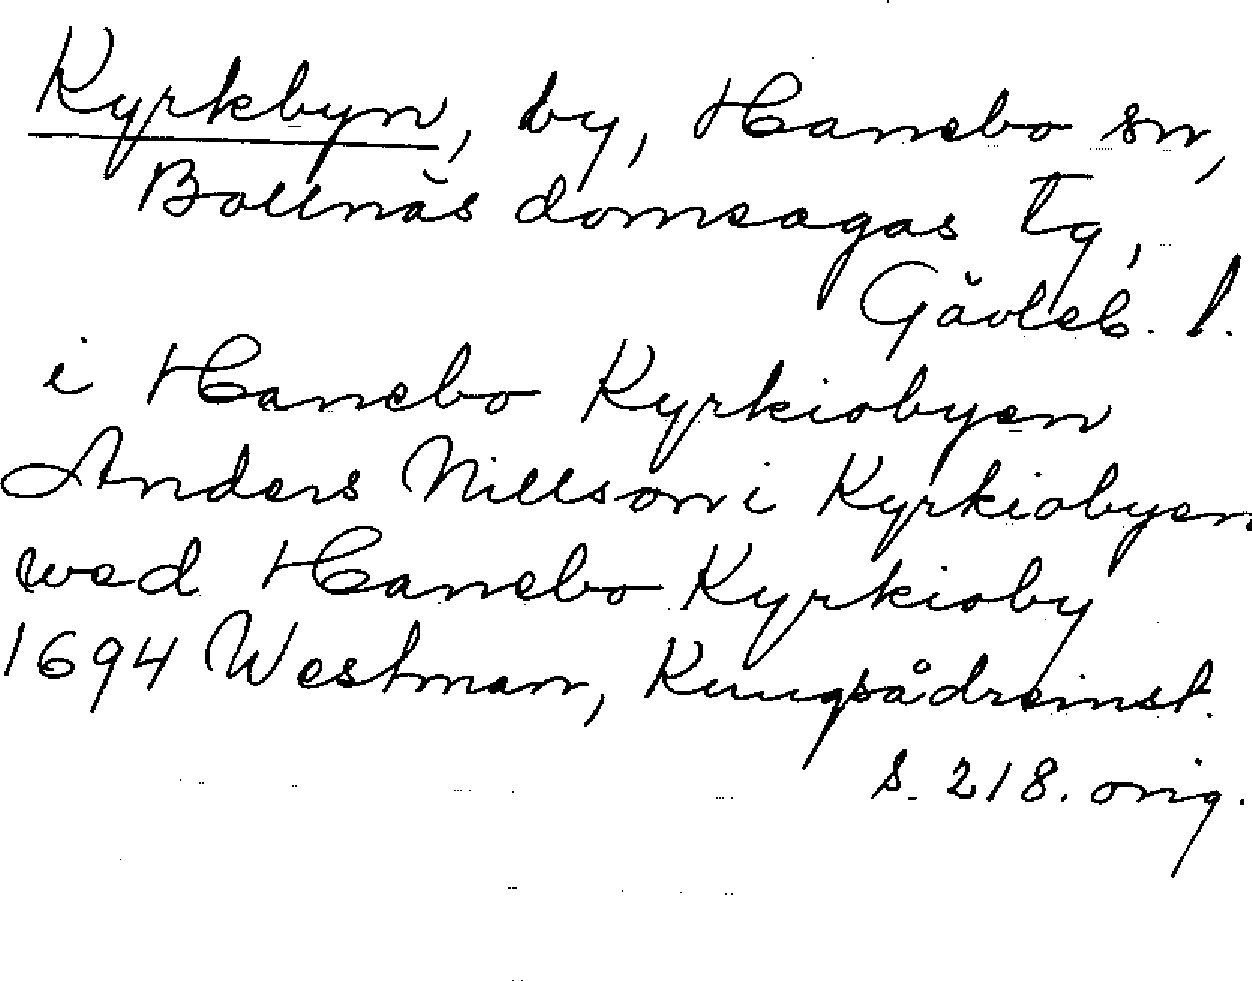 Kyrkbyn, by, Hanebo sn,
Bollnäs domsagas tg,
Gävleb. l.
i Hanebo Kyrkiobyen
Anders Nillson i Kyrkiobyen
wed Hanebo Kyrkioby
1694 Westman, Kungsådreinst.
s. 218. orig.